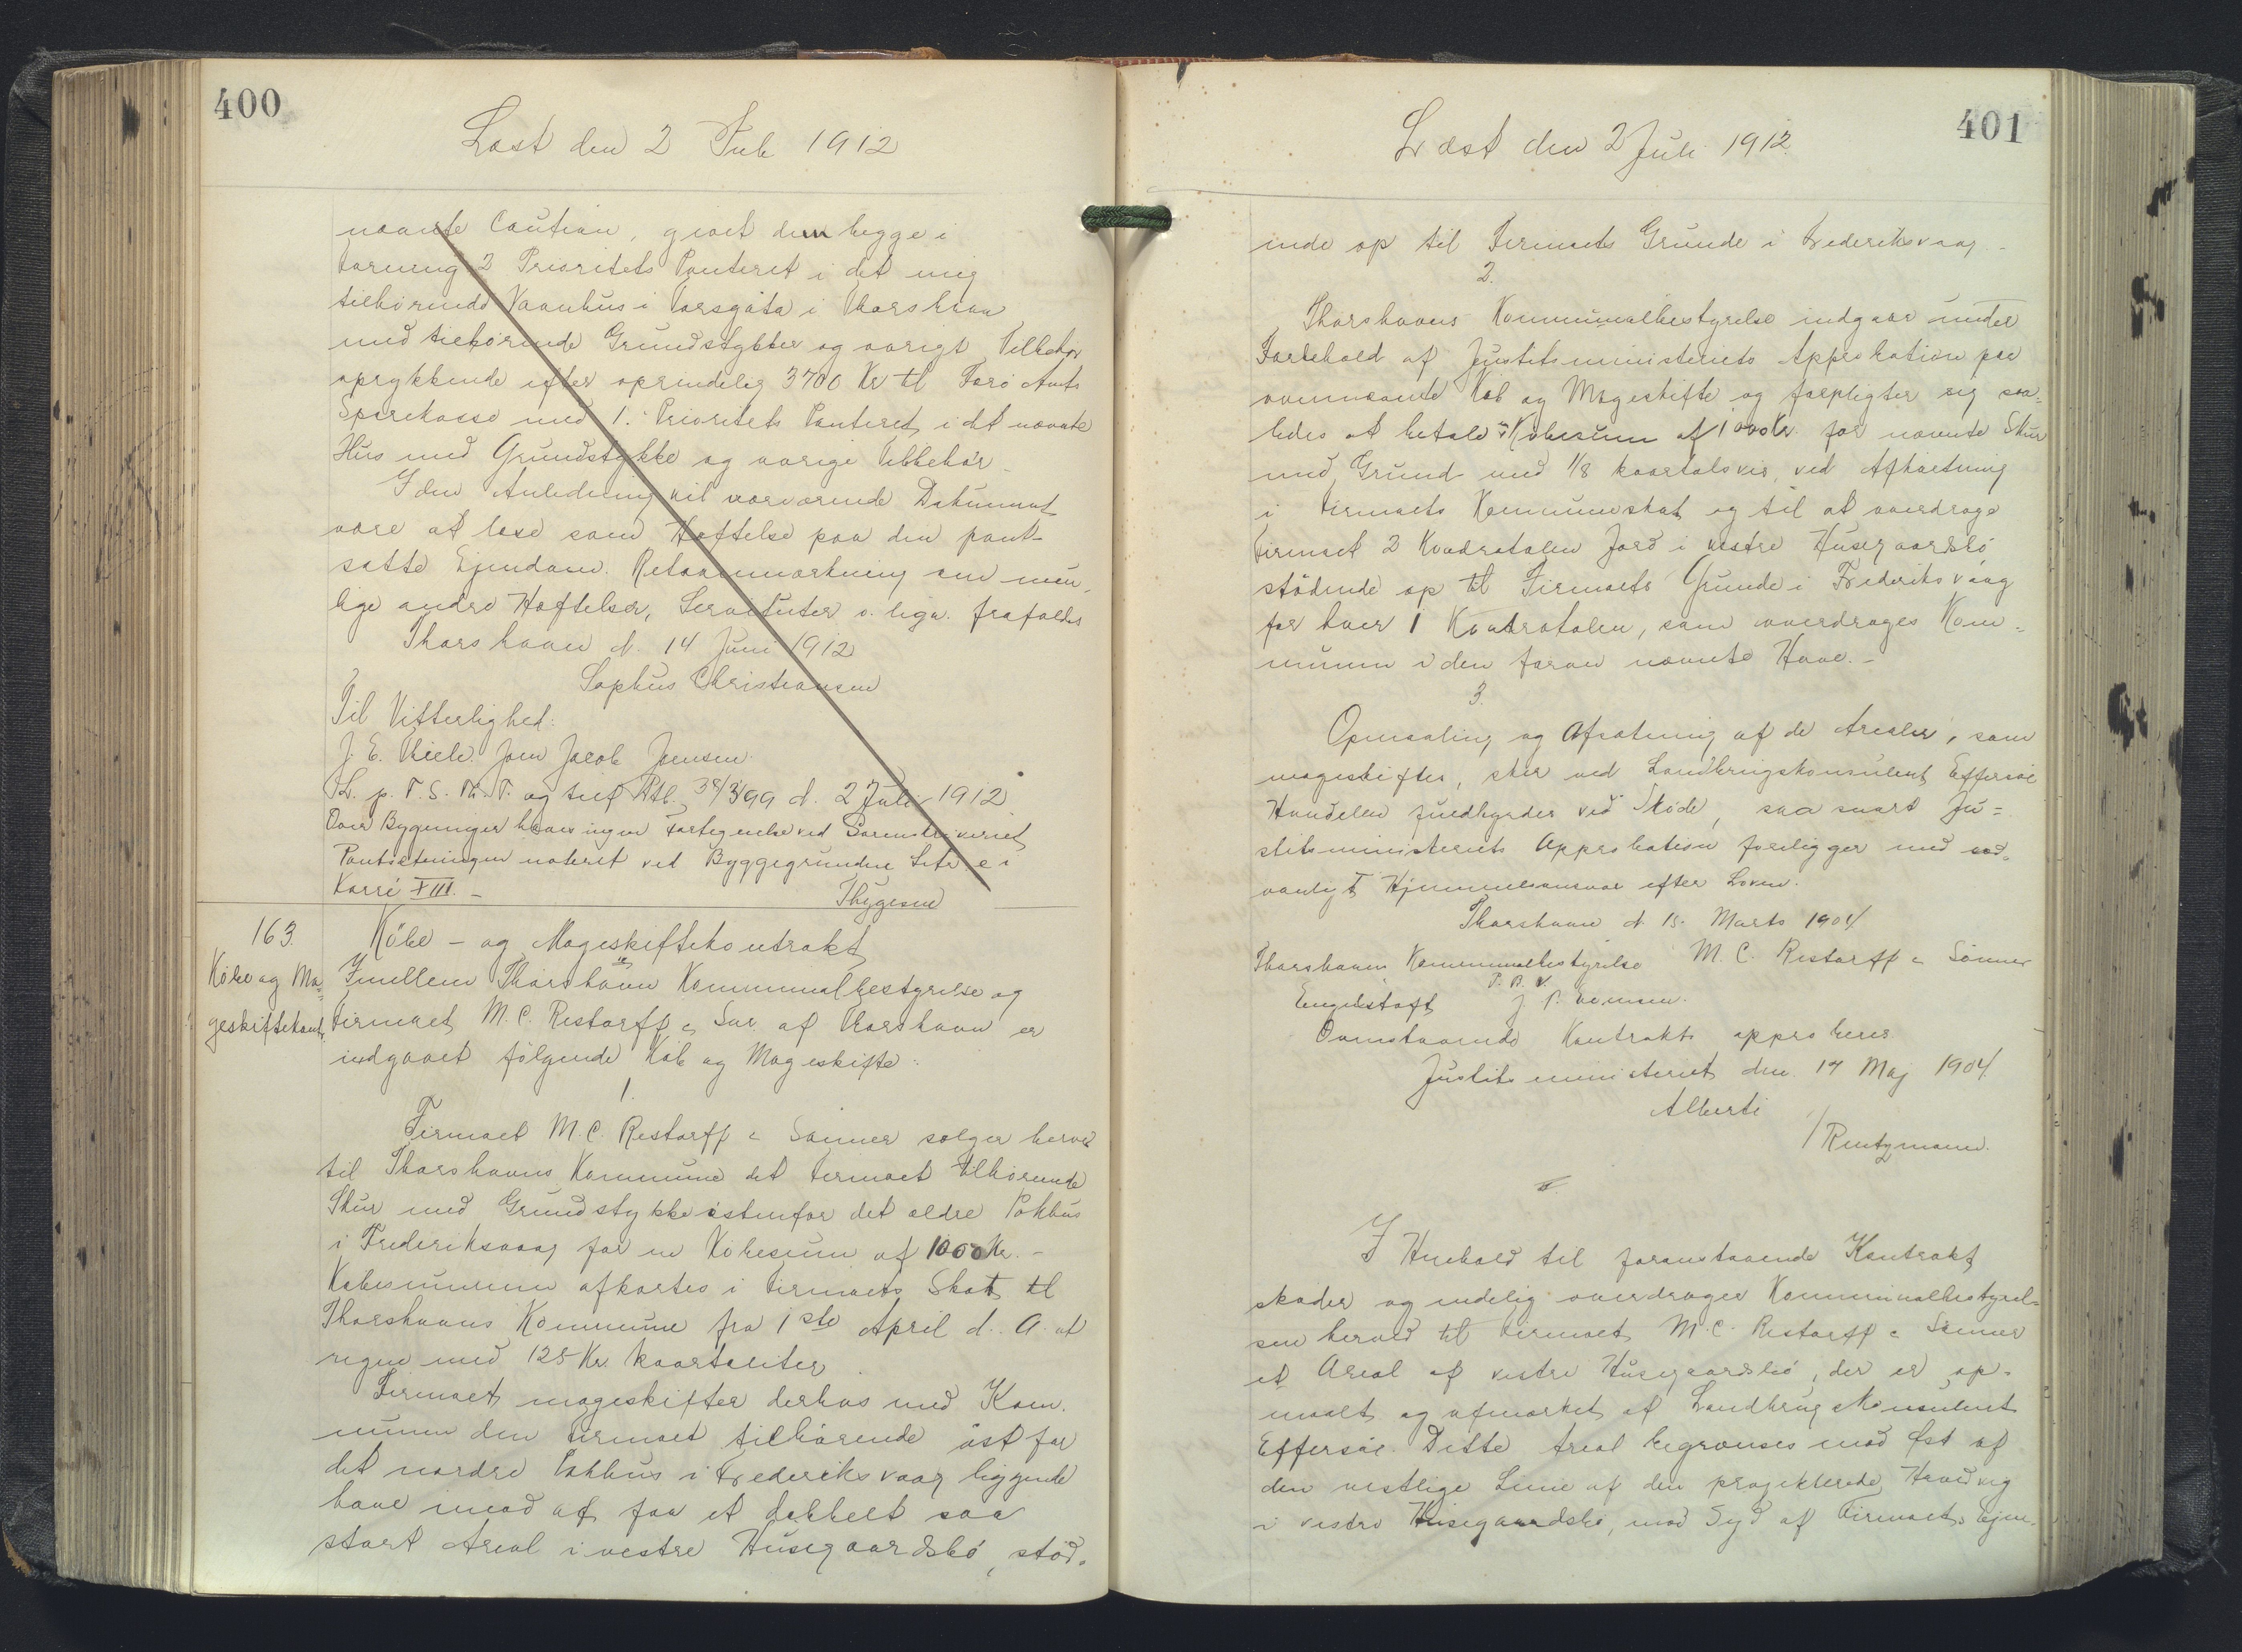 400
Læst den 2 Juli 1912
nævnte Caution, givet dem begge i
Forening 2 Prioritets Panteret i det mig
tilhørende Vaanhus i Torsgøta i Thorshavn
med tilhørende Grundstykker og øvrigt Tilbehør
oprykkende efter oprindelig 3700 Kr til Færø Amts
Sparekasse med 1. Prioritets Panteret i det nævnte
Hus med Grundstykke og øvrige Tilbehør.
I den Anledning vil nærværende Dokument
være at læse som Hæftelse paa den pant-
satte Ejendom. Retsanmærkning om mün-
lige andre Hæftelser, Servituter o. lign. frafaldes
Thorshavn d. 14 Juni 1912
Sophus Christiansen
Til Vitterlighed:
J. E. Thiele. Joen Jacob Jensen.
L. p. F. S. Th. T. og tilf Rtl. 38/399 d. 2 Juli 1912
Over Bygninger haves ingen Fortegnelse ved Sorenskriveriet
Pantsætningen noteret ved Byggegrundene Litr e i
Karré XIII. -
Thygesen
163.
Købe og Ma-
geskiftekontr.
Købe - og Mageskiftekontrakt
Imellem Thorshavn Kommunalbestyrelse og
Firmaet M. C. Restorff & Søn. af Thorshavn er
indgaaet følgende Køb og Mageskifte:
1.
Firmaet M. C. Restorff & Sønner sælger herved
til Thorshavns Kommune det Firmaet tilhørende
Skur med Grundstykke østenfor det ældre Pakhus
i Frederiksvaag for en Købesum af 1000 Kr. -
Købesummen afkortes i Firmaets Skat til
Thorshavns Kommune fra 1ste April d. A. at
regne med 125 Kr. kvartaliter
Firmaet mageskifter derhos med Kom-
munen den Firmaet tilhørende øst for
det nordre Pakhus i Frederiksvaag liggende
have imod at faa et dobbelt saa
stort Areal i vestre Husegaardsbø, stød-
401
Læst den 2 Juli 1912.
ende op til Firmaets Grunde i Frederiksvaag -
2.
Thorshavns Kommunalbestyrelse indgaar under
Forbehold af Justitsministeriets Approbation paa
ovennævnte Køb og Mageskifte og forpligter sig saa-
ledes at betale Købesum af 1000 Kr. for nævnte Skur
med Grund med 1/8 kvartalsvis ved Afkortning
i Firmaets Kommuneskat og til at overdrage
Firmaet 2 Kvadratalen Jord i vestre Husegaardsbø
stödende op til Firmaets Grunde i Frederiksvaag
for hver 1 Kvadratalen, som overdrages Kom-
munen i den foran nævnte Have. -
3.
Opmaaling og Afsætning af de Arealer, som
mageskiftes, sker ved Landbrugskonsulent Effersøe
Handelen fuldbyrdes ved Skøde, saa snart Ju-
stitsministeriets Approbation foreligger med sæd-
vanligt Hjemmelsansvar efter Loven.
Thorshavn d. 15. Marts 1904
Thorshavns Kommunalbestyrelse M. C. Restorff & Sønner
P. B. V.
Engelstoft
Ovenstaaende Kontrakt approberes
Justitsministeriet den 17 Maj 1904.
Alberti
/Rentzmann.
I Henhold til foranstaaende Kontrakt
skøder og endelig overdrager Kommunalbestyrel-
sen herved til Firmaet M. C. Restorff & Sønner
et Areal af vestre Husegaardsbø, der er op-
maalt og afmærket af Landbrugskonsulent
Effersøe. Dette Areal begrænses mod Øst af
den vestlige Linie af den projekterede Hovedvej
i vestre Husegaardsbø, mod Syd af Firmaets Ejen-